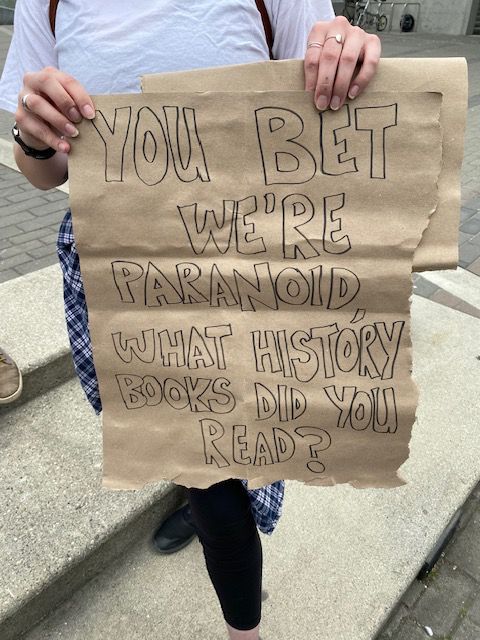 YOU BET
WE'RE
PARANOID,
WHAT HISTORY
BOOKS DID YOU
READ?